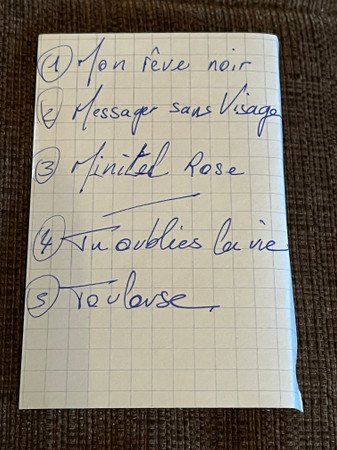 1 Mon rêve noir
2 Messager sans Visage
3 Minitel Rose
4 Tu oublies la vie
5 Toulouse.